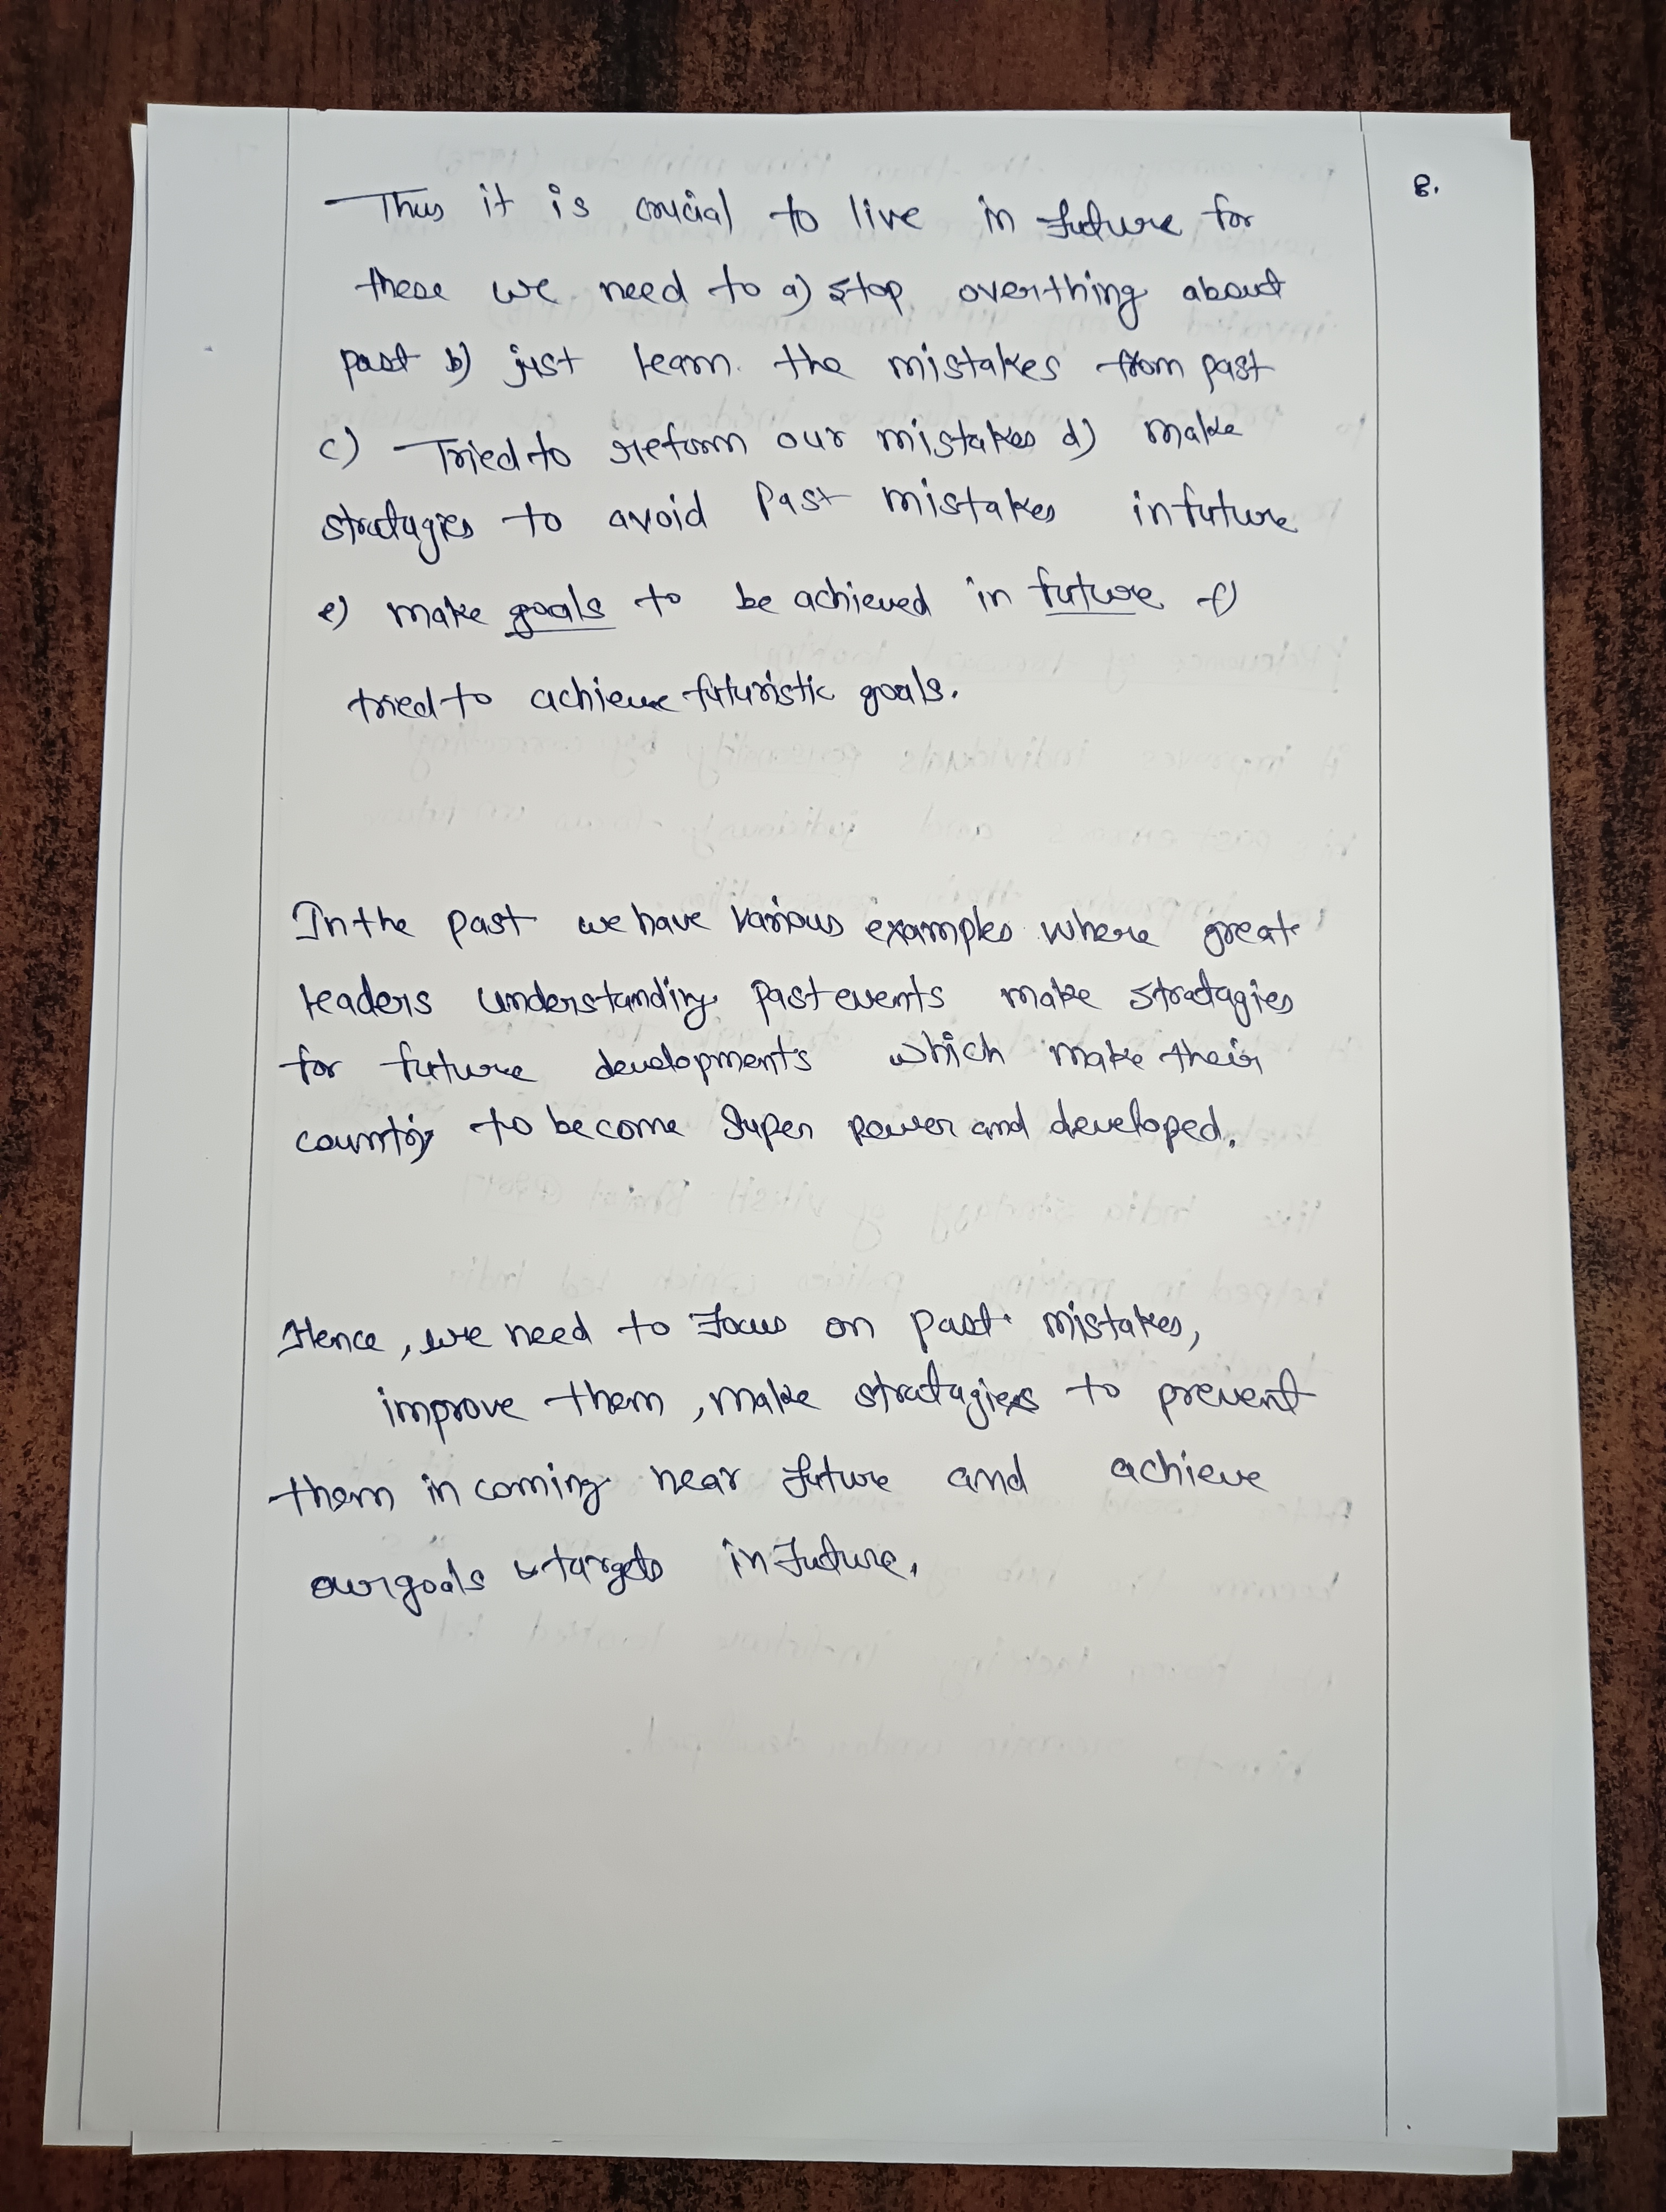 8.
Thus it is crucial to live in future for
these we need to a) stop overthing about
past b) just learn the mistakes from past
c) Tried to reform our mistakes d) make
stratagies to avoid Past mistakes in future
e) make goals to be achieved in future f)
tried to achieve futuristic goals.
In the past we have various examples where great
leaders understanding past events make stratagies
for future developments which make their
country to become Super Power and developed.
Hence, we need to Focus on past mistakes,
improve them, make stratagies to prevent
them in coming near future and achieve
our goals & targets in Future.